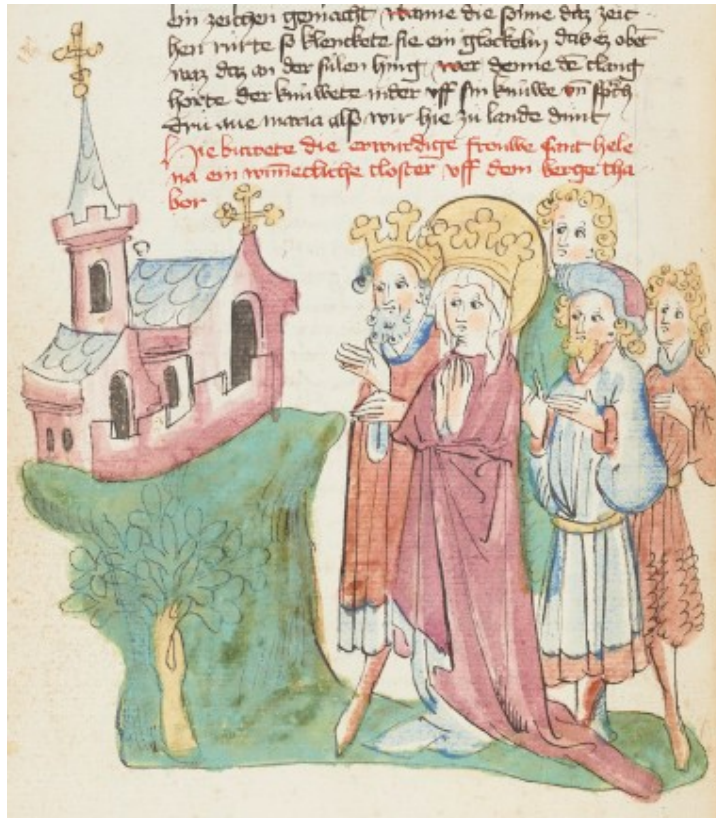 ein zeichen gemacht Wanne die sonne daz zeic
hen rürte so klenckete sie ein glockelin daz ez oben
waz daz an der sulen hing wer denne dē clang
horte der knuwete nider vff sin knuwe vn̄ sprch
drü aue maria also wir hie zu lande dunt
Hie buwete die erwurdige frouwe sant hele
na ein wūnecliche closter vff dem berge tha
bor